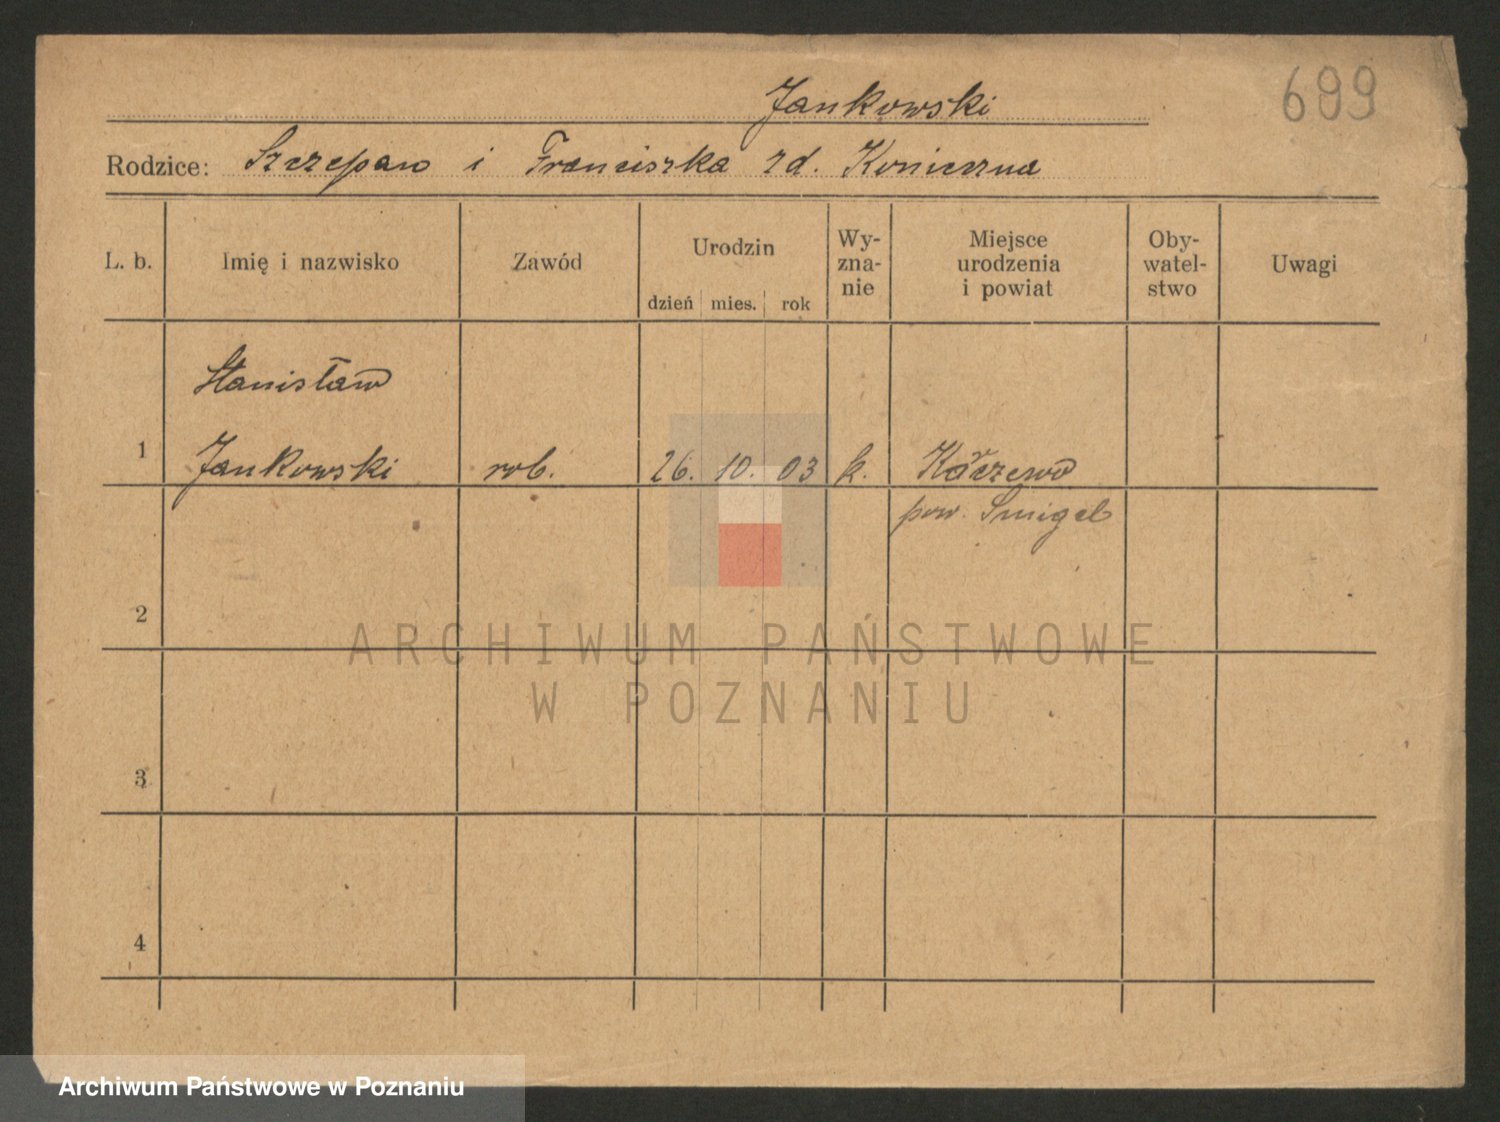 699
Jankowski
Rodzice: Szczepan i Franciszka zd. Konieczna
L. b. Imię i nazwisko Zawód Urodzin dzień mies. rok Wy-zna-nie Miejsce urodzenia i powiat Oby-watel-stwo Uwagi
Stanisław
1 Jankowski rob. 26. 10. 03 k.
pow. Śmigel
2
ARCHIWUM PAŃSTWOWE
W POZNANIU
3
4
Archiwum Państwowe w Poznaniu